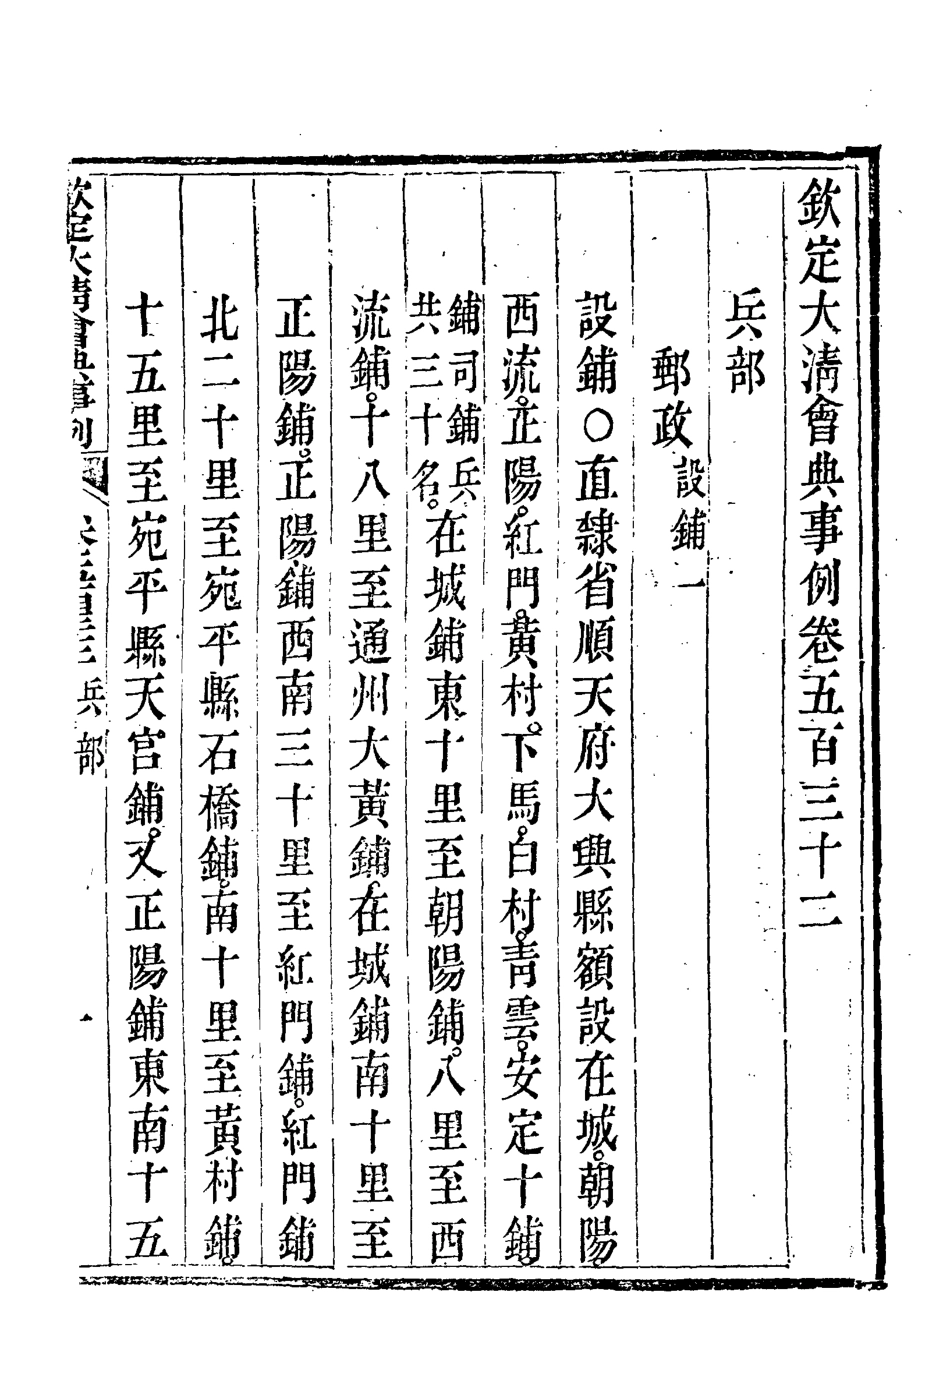 欽定大淸會典事例卷五百三十二
兵部
郵政 設鋪一
設鋪○直隸省順天府大興縣額設在城。朝陽。
西流。正陽。紅門。黃村。下馬。白村。靑雲。安定十鋪。
鋪司鋪兵共三十名。在城鋪東十里至朝陽鋪。八里至西
流鋪。十八里至通州大黃鋪。在城鋪南十里至
正陽鋪。正陽鋪西南三十里至紅門鋪。紅門鋪
北二十里至宛平縣石橋鋪。南十里至黃村鋪。
十五里至宛平縣天宮鋪。又正陽鋪東南十五
欽定大淸會典事例 兵部 一